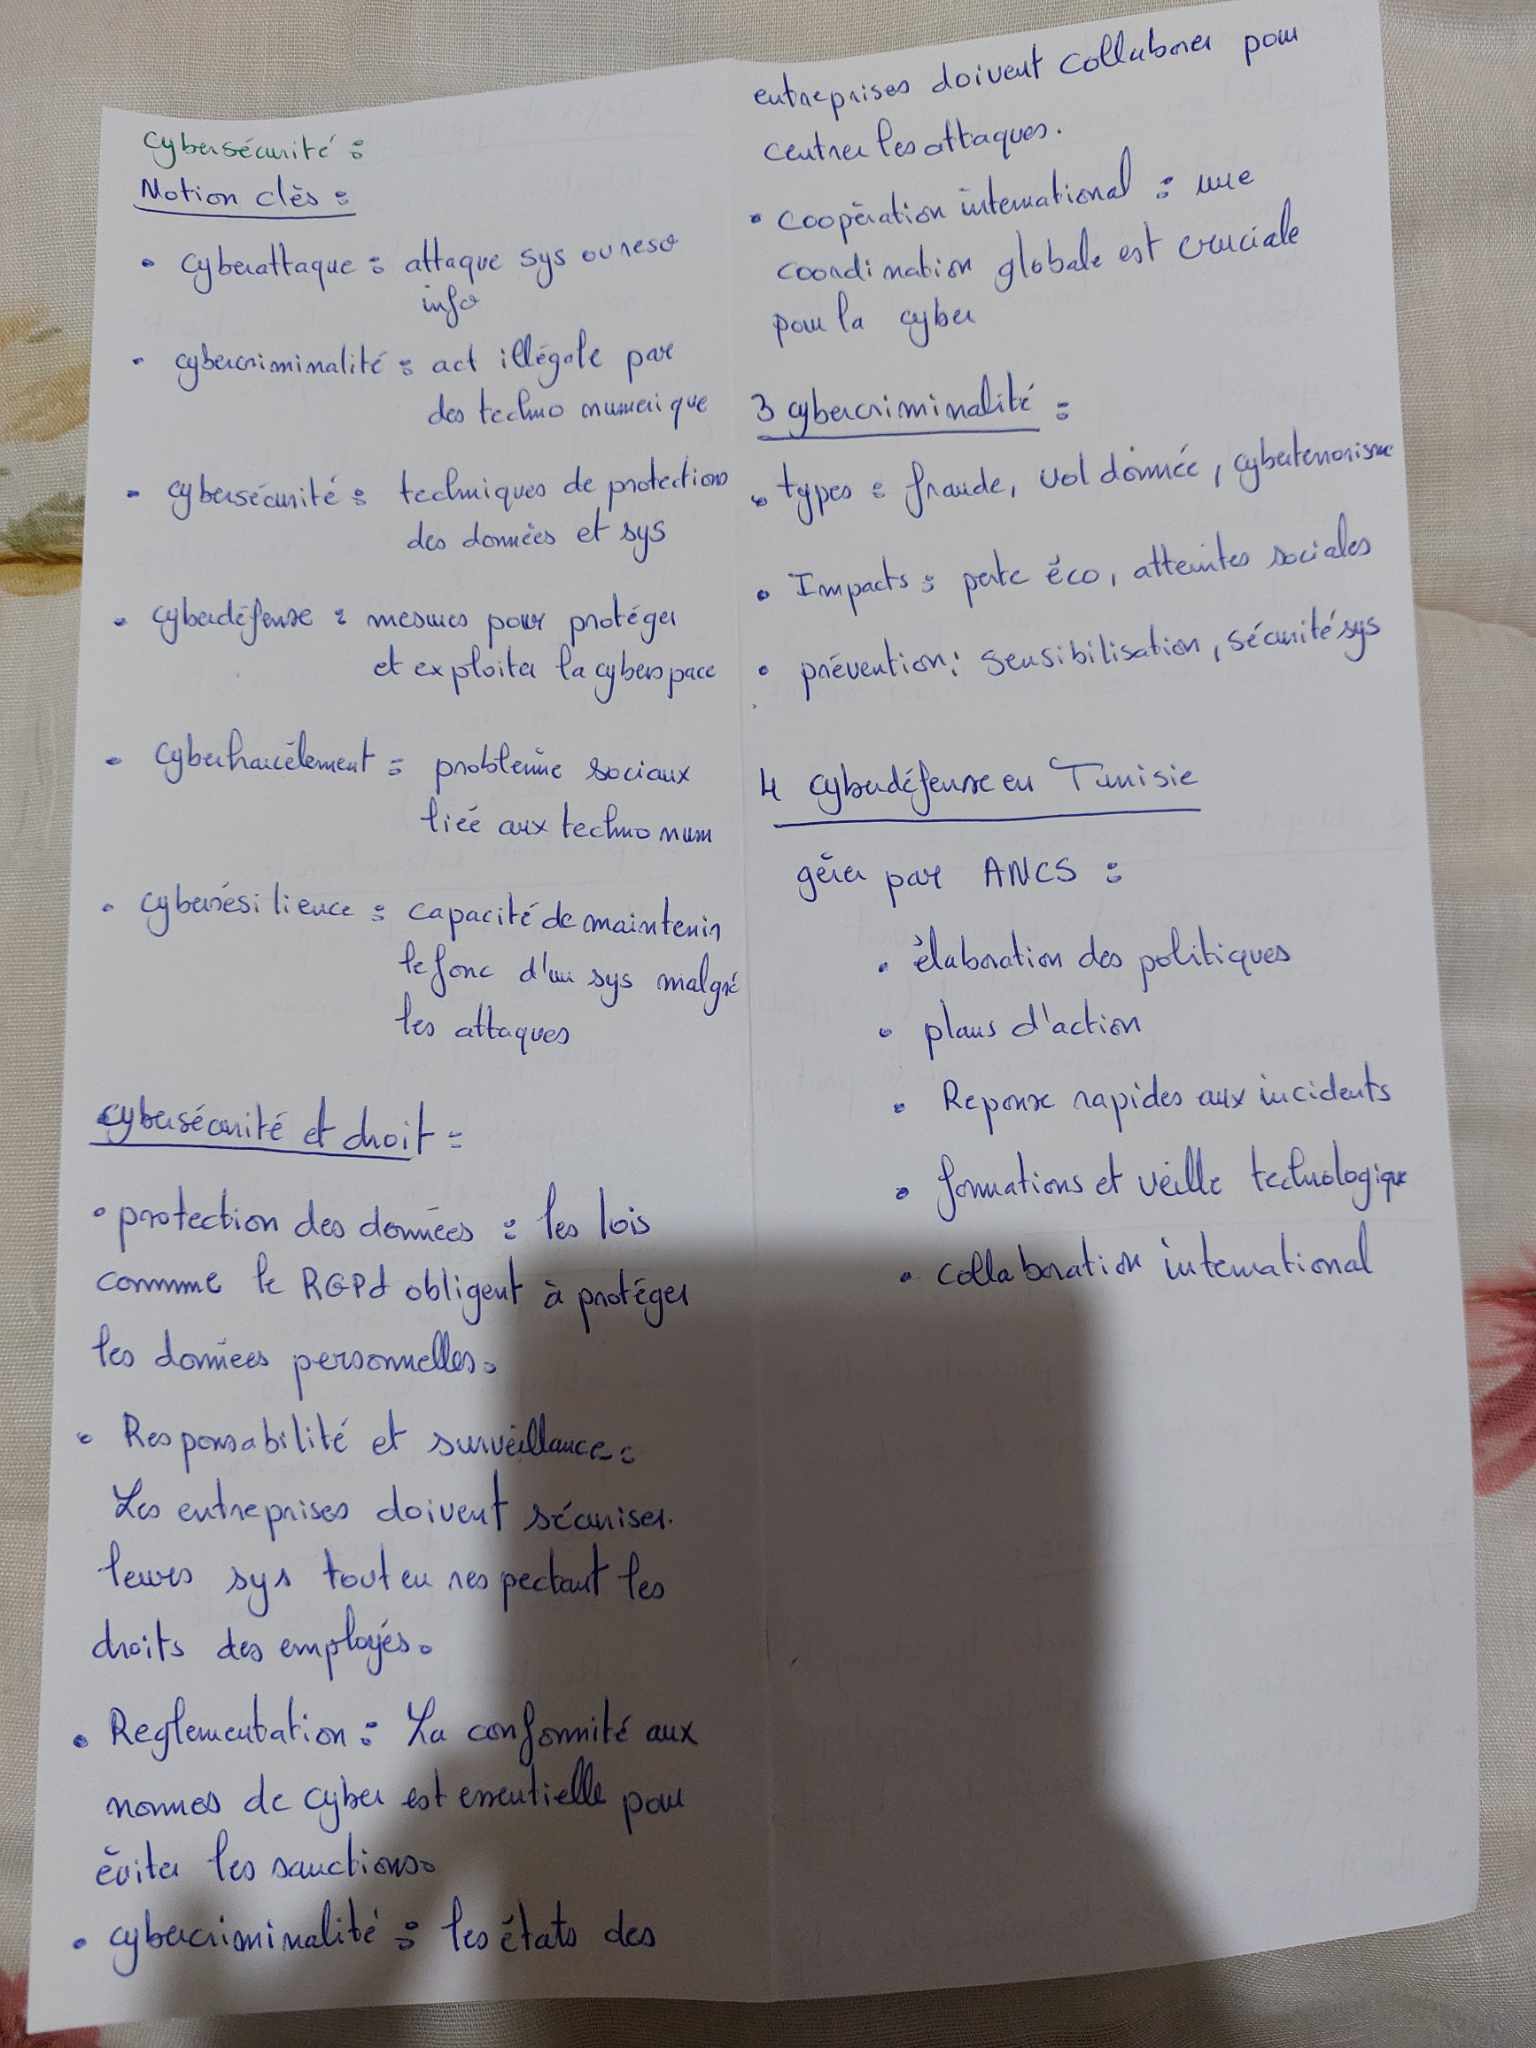 Cybersécurité :
Notion clés :
• cyberattaque : attaque sys ou reso
info
• cybercriminalité : act illégale par
des techno numerique
• cybersécurité : techniques de protections
des données et sys
• cyberdéfense : mesures pour protéger
et exploiter la cyberspace
• Cyberharcèlement : problème sociaux
liée aux techno num
• cyberrésilience : capacité de maintenir
le fonc d'un sys malgré
les attaques
cybersécurité et droit :
• protection des données : les lois
comme le RGPd obligent à protéger
les données personnelles.
• Responsabilité et surveillance :
Les entreprises doivent sécuriser
leurs sys tout en respectant les
droits des employés.
• Reglementation : La conformité aux
normes de cyber est essentielle pour
éviter les sanctions.
• cybercriminalité : les états des
entreprises doivent collaborer pour
centrer les attaques.
• coopération international : une
coordination globale est cruciale
pour la cyber
3 cybercriminalité :
• types : fraude, vol donnée, cyberterrorisme
• Impacts : perte éco, atteintes sociales
• prévention : sensibilisation, sécurité sys
4 cyberdéfense en Tunisie
gérer par ANCS :
• élaboration des politiques
• plans d'action
• Reponse rapides aux incidents
• formations et veille technologique
• collaboration international